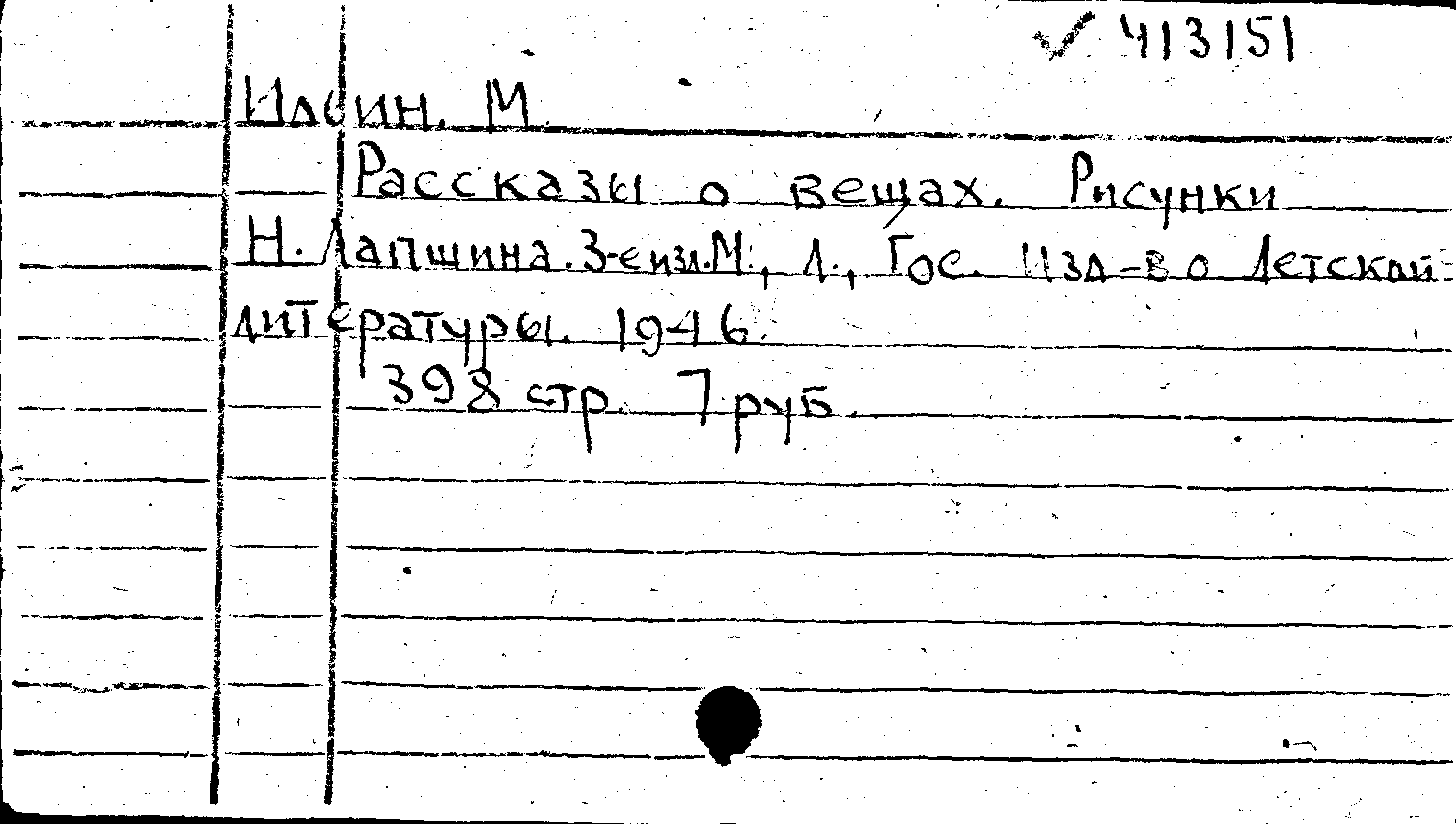 ✓ 413151
Ильин. М.
Рассказы о вещах. Рисунки
Н. Лапшина. 3-е изд. М., Л., Гос. Изд-во Детской
литературы. 1946.
398 стр. 7 руб.